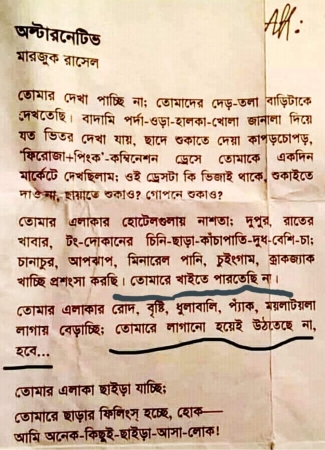 Aff:
অল্টারনেটিভ
মারজুক রাসেল
তোমার দেখা পাচ্ছি না; তোমাদের দেড়-তলা বাড়িটাকে
দেখতেছি। বাদামি পর্দা-ওড়া-হালকা-খোলা জানালা দিয়ে
যত ভিতর দেখা যায়, ছাদে শুকাতে দেয়া কাপড়চোপড়,
'ফিরোজা+পিংক'-কম্বিনেশন ড্রেসে তোমাকে একদিন
মার্কেটে দেখছিলাম; ওই ড্রেসটা কি ভিজাই থাকে, শুকাইতে
দাও না, ছায়াতে শুকাও? গোপনে শুকাও?
তোমার এলাকার হোটেলগুলায় নাশতা; দুপুর, রাতের
খাবার, টং-দোকানের চিনি-ছাড়া-কাঁচাপাত্তি-দুধ-বেশি-চা;
চানাচুর, আপঝাপ, মিনারেল পানি, চুইংগাম, ক্র্যাকজ্যাক
খাচ্ছি প্রশংসা করছি। তোমারে খাইতে পারতেছি না।
তোমার এলাকার রোদ, বৃষ্টি, ধুলাবালি, প্যাঁক, ময়লাটয়লা
লাগায় বেড়াচ্ছি; তোমারে লাগানো হয়েই উঠতেছে না,
হবে...
তোমার এলাকা ছাইড়া যাচ্ছি;
তোমারে ছাড়ার ফিলিংস্ হচ্ছে, হোক—
আমি অনেক-কিছুই-ছাইড়া-আসা-লোক!